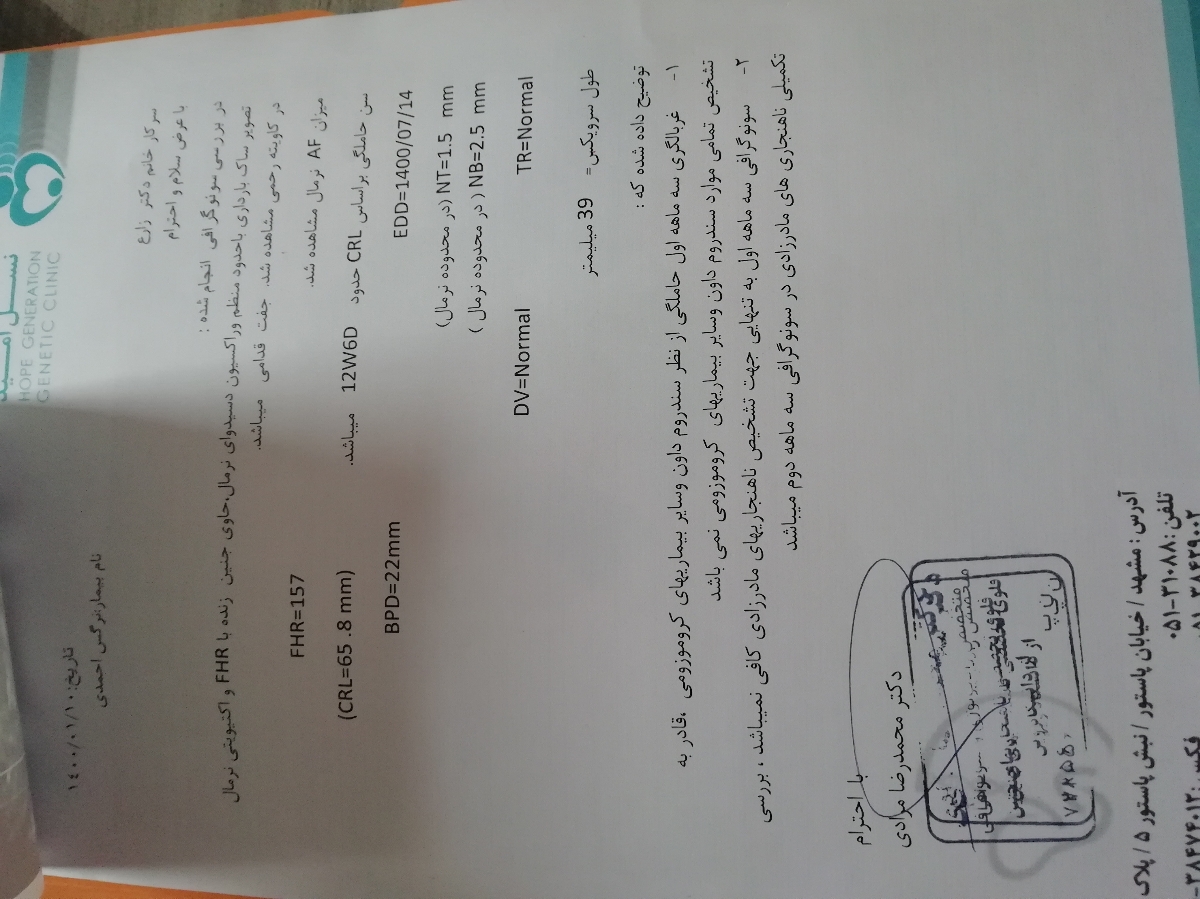 نسل امید
HOPE GENERATION
GENETIC CLINIC
تاریخ: ۱٤۰۰/۰۱/۱۰
نام بیمار:نرگس احمدی
سرکار خانم دکتر زارع
با عرض سلام و احترام
در بررسی سونوگرافی انجام شده :
تصویر ساک بارداری باحدود منظم وراکسیون دسیدوای نرمال،حاوی جنین زنده با FHR و اکتیویتی نرمال
در کاویته رحمی مشاهده شد. جفت قدامی میباشد.
میزان AF نرمال مشاهده شد. FHR=157
سن حاملگی براساس CRL حدود 12W6D میباشد. (CRL=65 .8 mm)
EDD=1400/07/14 BPD=22mm
NT=1.5 mm (در محدوده نرمال)
NB=2.5 mm ( در محدوده نرمال )
TR=Normal DV=Normal
طول سرویکس= 39 میلیمتر
توضیح داده شده که :
۱- غربالگری سه ماهه اول حاملگی از نظر سندروم داون وسایر بیماریهای کروموزومی ،قادر به
تشخیص تمامی موارد سندروم داون وسایر بیماریهای کروموزومی نمی باشد
۲- سونوگرافی سه ماهه اول به تنهایی جهت تشخیص ناهنجاریهای مادرزادی کافی نمیباشد ، بررسی
تکمیلی ناهنجاری های مادرزادی در سونوگرافی سه ماهه دوم میباشد
با احترام
دکتر محمدرضا مرادی
آدرس: مشهد / خیابان پاستور / نبش پاستور ۵ / پلاک
تلفن: ۳۱۰۸۸-۰۵۱
فکس: